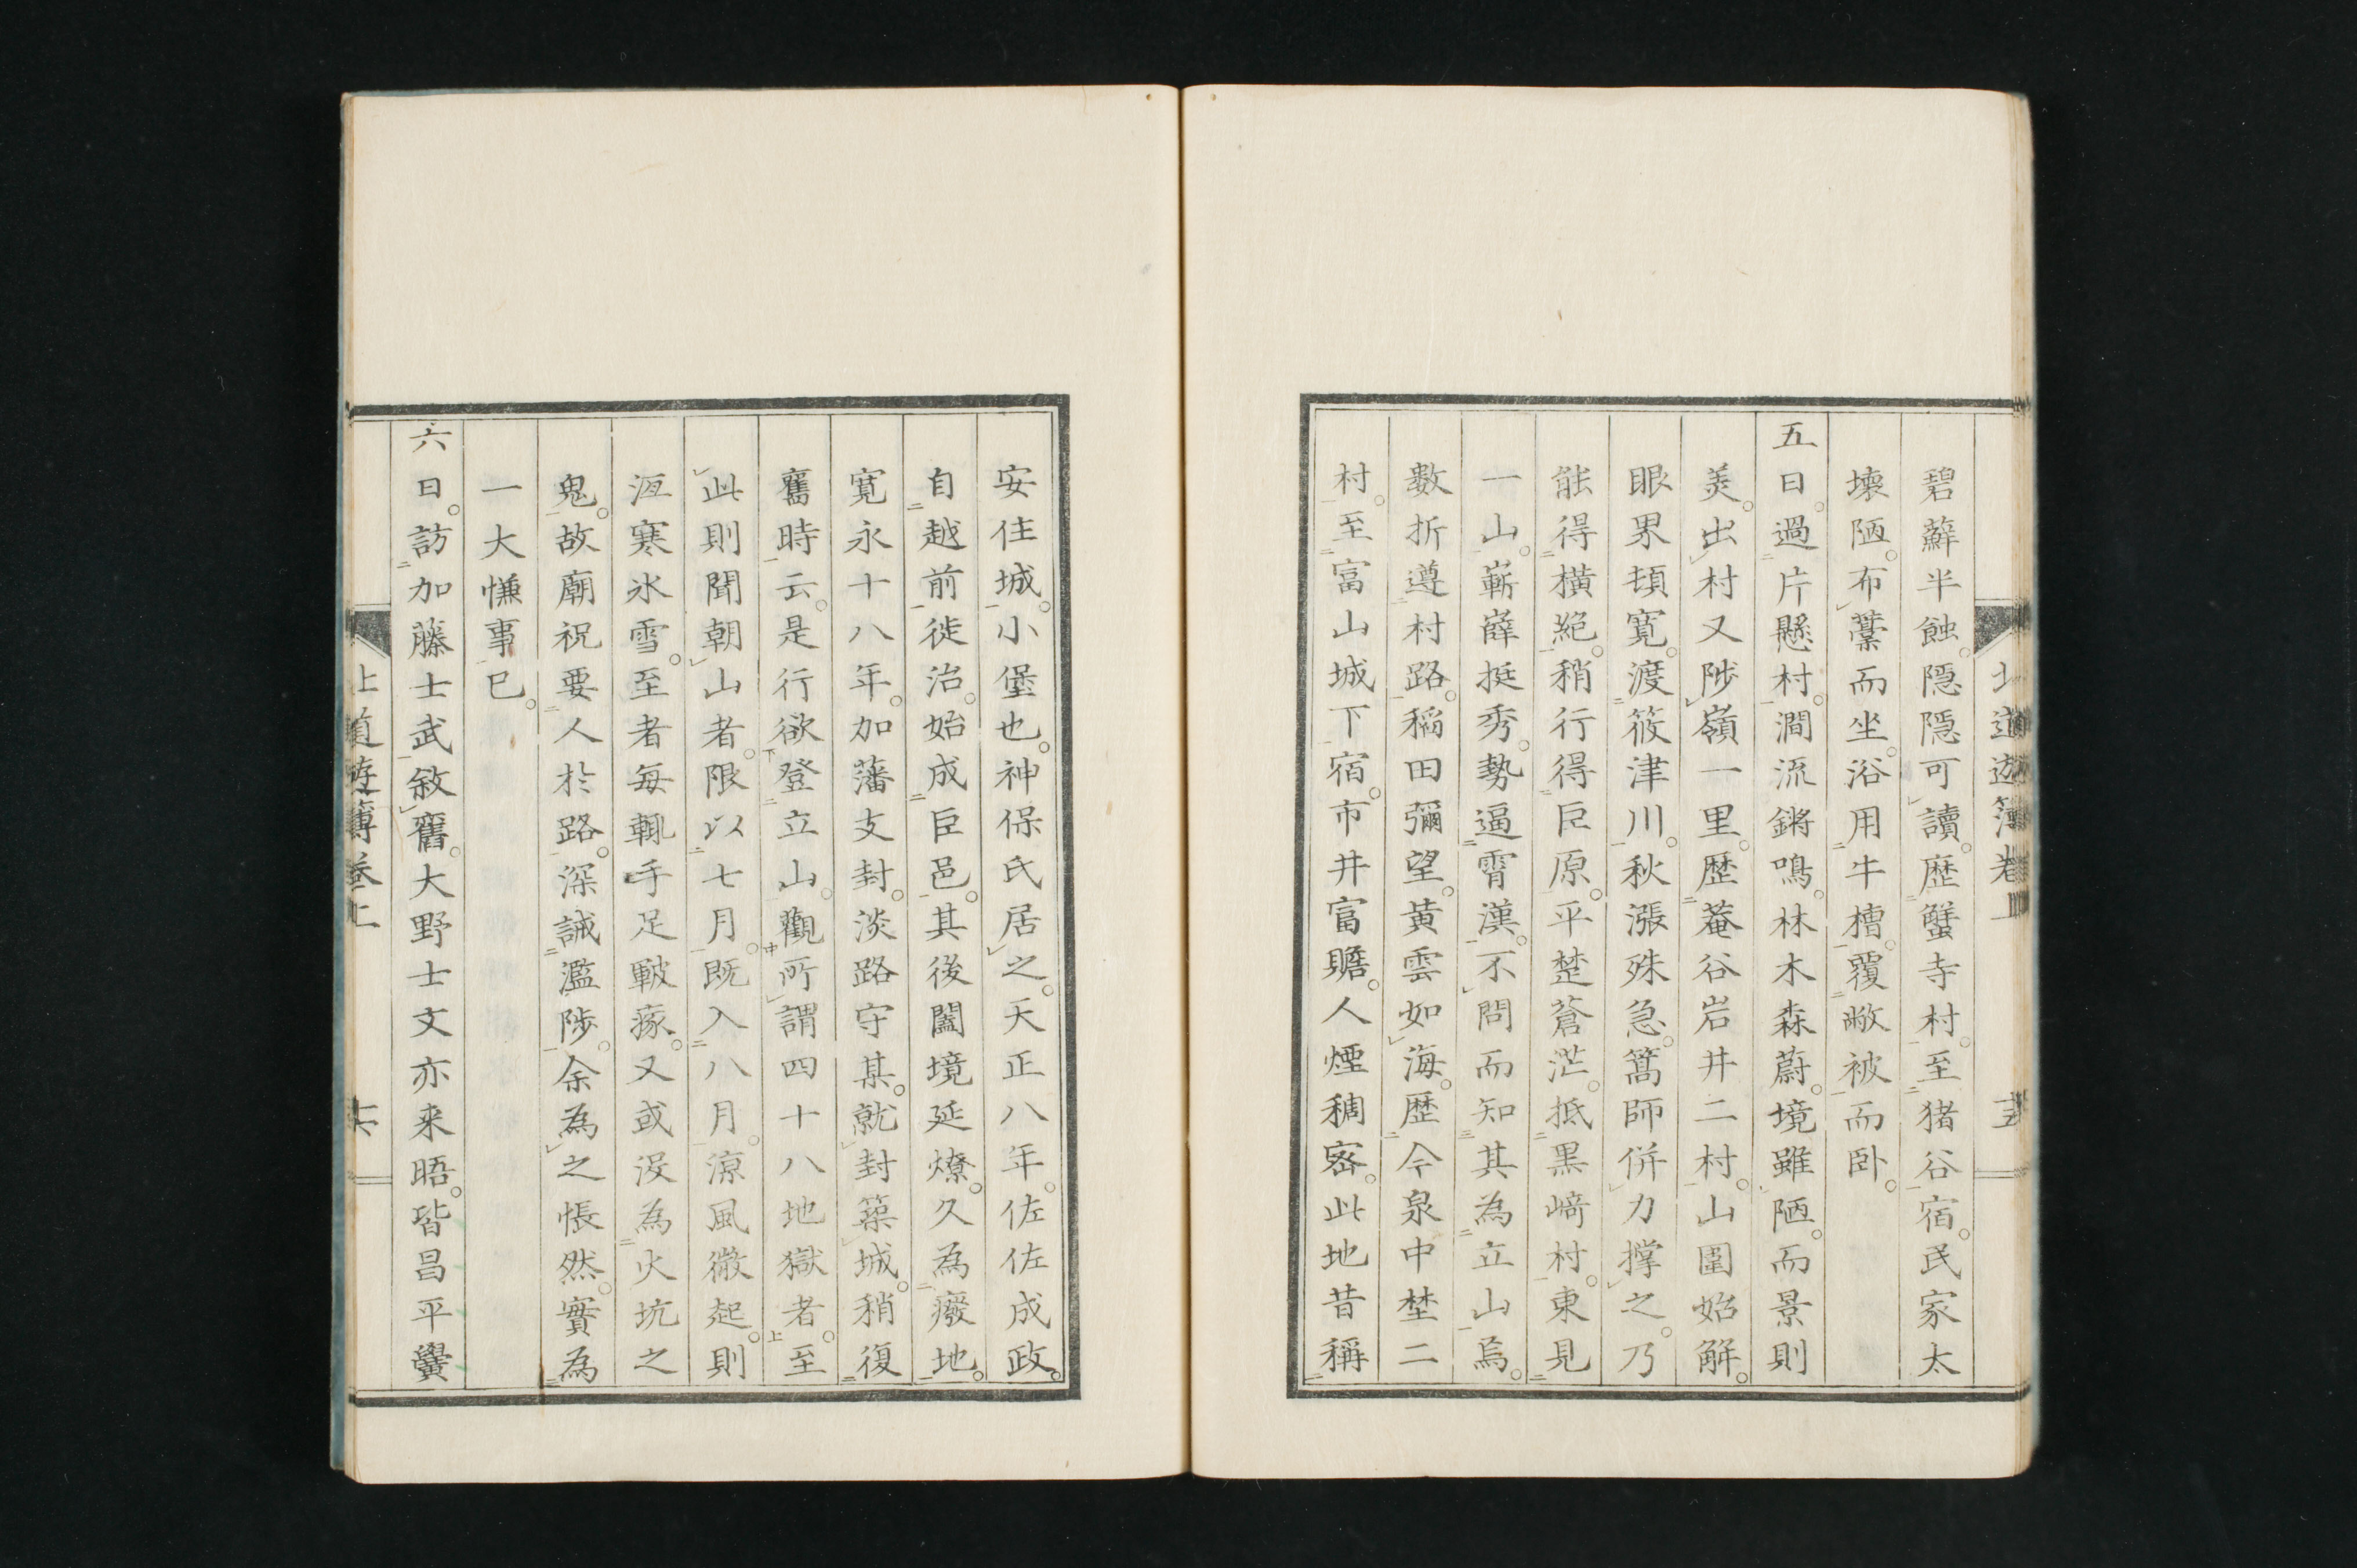 碧蘚半蝕。隠隠可讀。歴蟹寺村。至猪谷宿。民家太
壊陋。布藁而坐。浴用牛槽。覆敝被而卧。
五日。過片懸村。澗流鏘鳴。林木森蔚。境雖陋。而景則
美。出村又陟嶺一里。歴菴谷岩井二村。山圍始解。
眼界頓寛。渡筱津川。秋漲殊急。篙師併力撑之。乃
能得横絶。稍行得巨原。平楚蒼茫。抵黒﨑村。東見
一山。嶄嶭挺秀。勢逼霄漢。不問而知其為立山焉。
數折遵村路。稲田彌望。黄雲如海。歴今泉中埜二
村。至富山城下宿。市井富贍。人煙稠密。此地昔稱
安住城。小堡也。神保氏居之。天正八年。佐佐成政。
自越前徙治。始成巨邑。其後闔境延燎。久為癈地。
寛永十八年。加藩支封。淡路守某。就封築城。稍復
舊時云。是行欲登立山。觀所謂四十八地獄者。至
此則聞朝山者。限以七月。既入八月。凉風微起。則
沍寒氷雪。至者毎輒手足皸瘃。又或没為火坑之
鬼。故廟祝要人於路。深誡濫陟。余為之悵然。實為
一大慊事已。
六日。訪加藤士武。敘舊。大野士文亦来晤。皆昌平黌